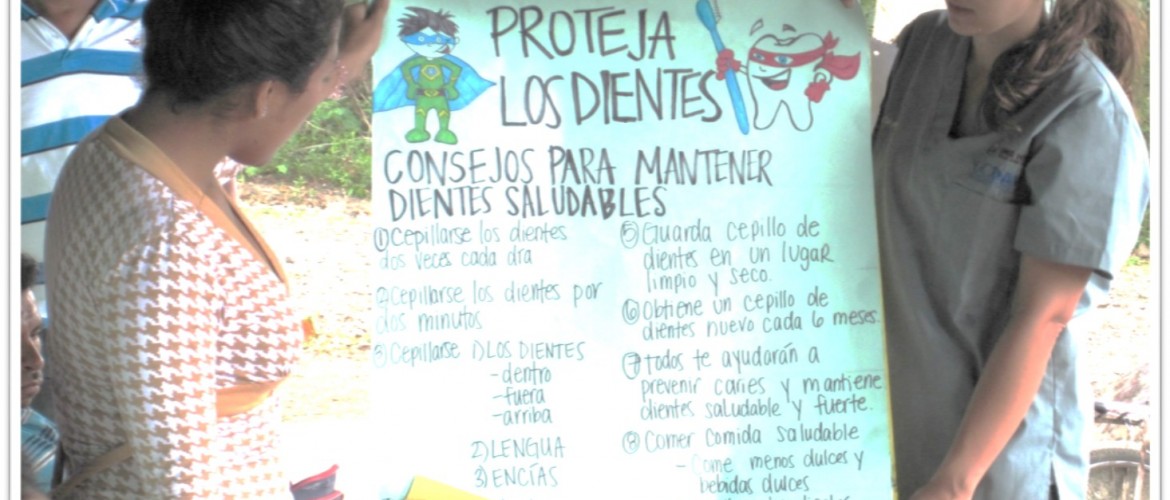 PROTEJA
LOS DIENTES
CONSEJOS PARA MANTENER
DIENTES SALUDABLES
① Cepillarse los dientes
dos veces cada dia
② Cepillarse los dientes por
dos minutos
③ Cepillarse 1) LOS DIENTES
-dentro
-fuera
-arriba
2) LENGUA
3) ENCÍAS
⑤ Guarda cepillo de
dientes en un lugar
limpio y seco.
⑥ Obtiene un cepillo de
dientes nuevo cada 6 meses.
⑦ todos te ayudarán a
prevenir caries y mantiene
dientes saludable y fuerte.
⑧ Comer comida saludable
- Come menos dulces y
bebidas dulces